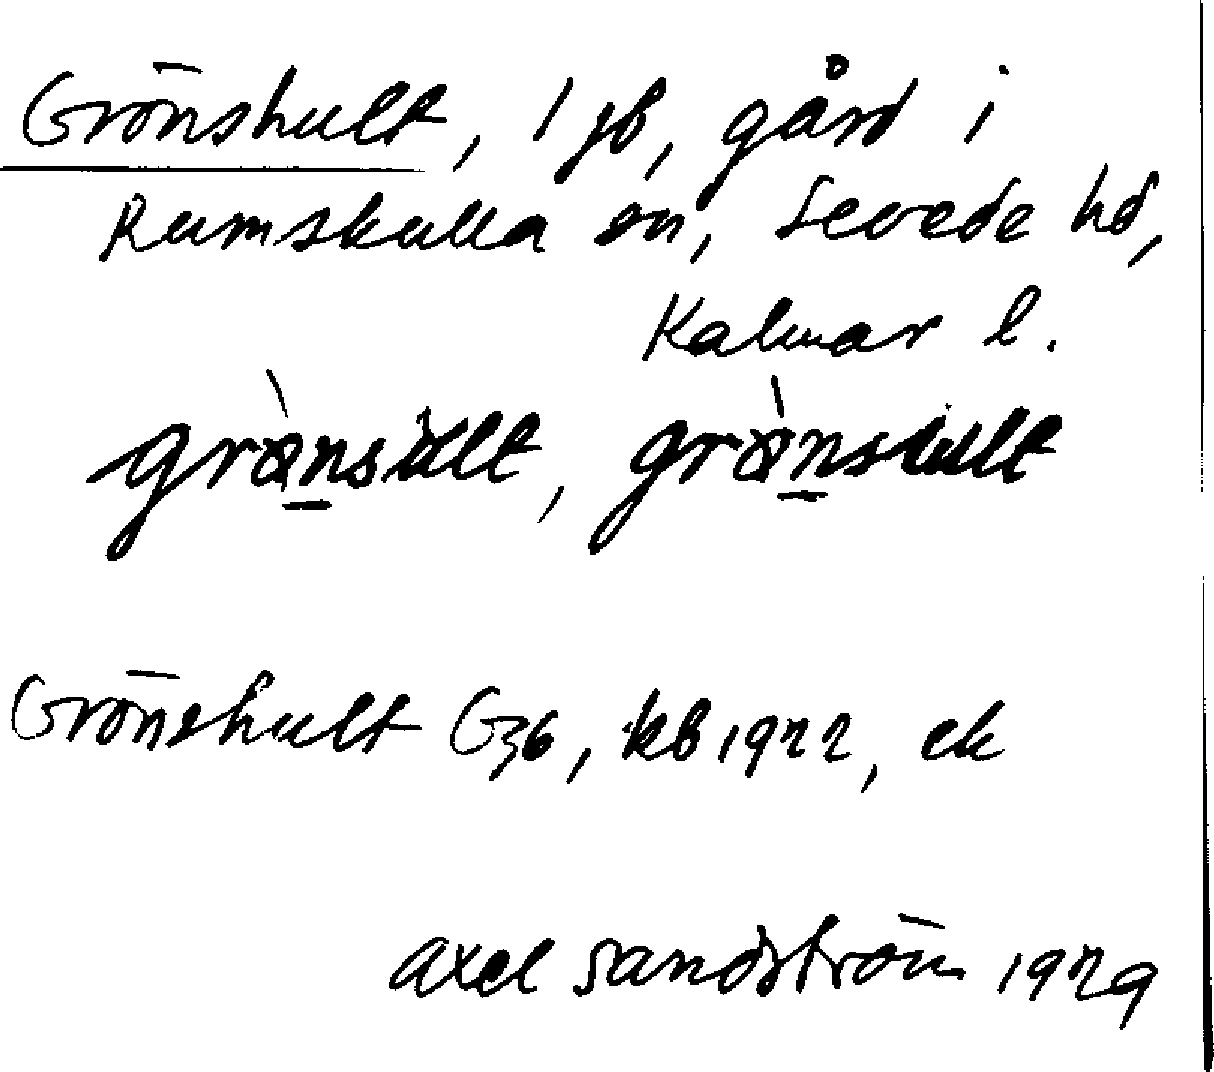 Grönshult, 1 jb, gård i
Rumskulla sn, Sevede hd,
Kalmar l.
Grönshult G36, kb 1922, ek
Axel Sandström 1929